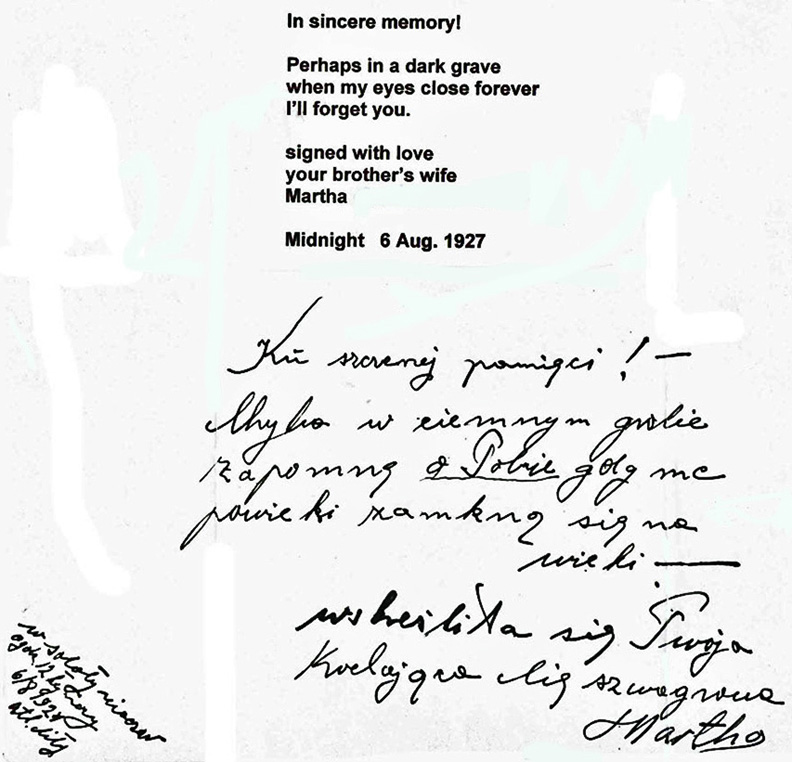 In sincere memory!
Perhaps in a dark grave
when my eyes close forever
I'll forget you.
signed with love
your brother's wife
Martha
Midnight 6 Aug. 1927
Ku szczerej pamięci ! —
Chyba w ciemnym grobie
zapomnę o Tobie gdy me
powieki zamkną się na
wieki —
wskreśliła się Twoja
Kochająca Cię szwagrowa
Martha
w soboty
6/8 1927